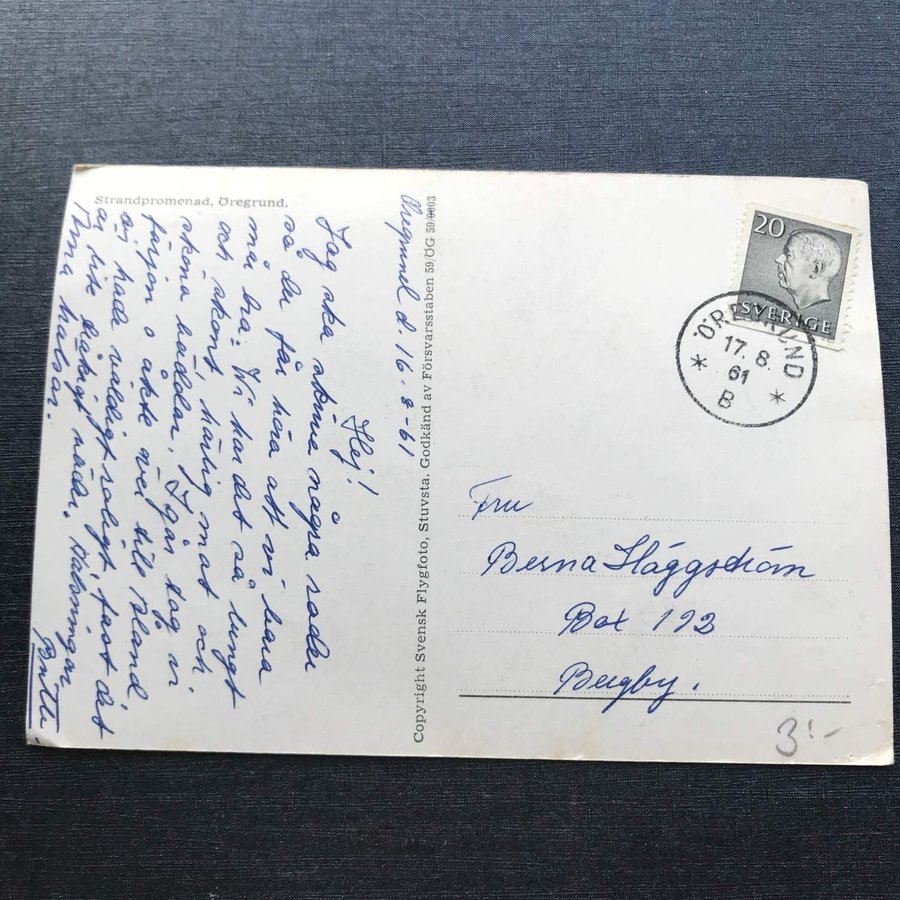 Strandpromenad, Öregrund.
Öregrund d. 16-8-61
Hej!
Jag ska skriva några rader
så du får höra att vi bara
må bra. Vi har det så lungt
och skönt, härlig mat och
sköna bäddar. Igår tog vi
färjan o åkte över till
vi hade väldigt roligt, fast det
är lite dåligt väder. Hälsningar
Dina halsar.
Copyright Svensk Flygfoto, Stuvsta. Godkänd av Försvarsstaben 59/ÖG 59/0003
20
SVERIGE
ÖREGRUND
17. 8.
61
B
Fru
Berna Häggström
Box 192
Bergby.
3:-